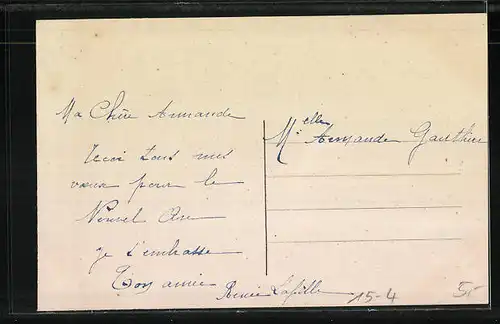 Ma Chère Armande
Reçoi tous mes
vœux pour le
Nouvel An
je t'embrasse
Ton amie
Renée
Melle Armande Gauthier
15-4